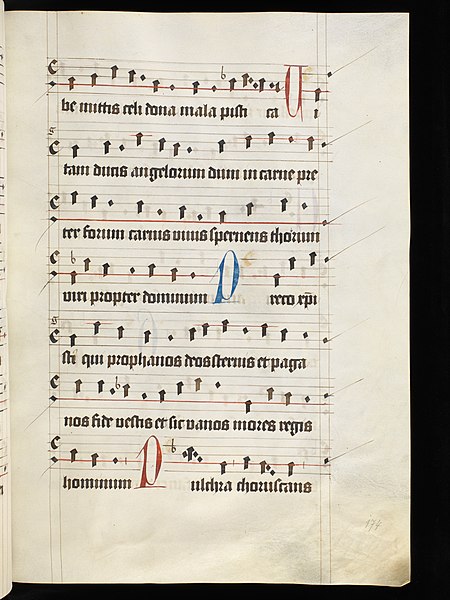 be mittis celi dona mala pisti ca Vi
tam ducis angelorum dum in carne pre
ter forum carnis vivis spernens thorum
viri propter dominum Preco xpi
sti qui prophanos deos sternis et paga
nos fide vestis et sic vanos mores regis
hominum Pulchra choruscans
174